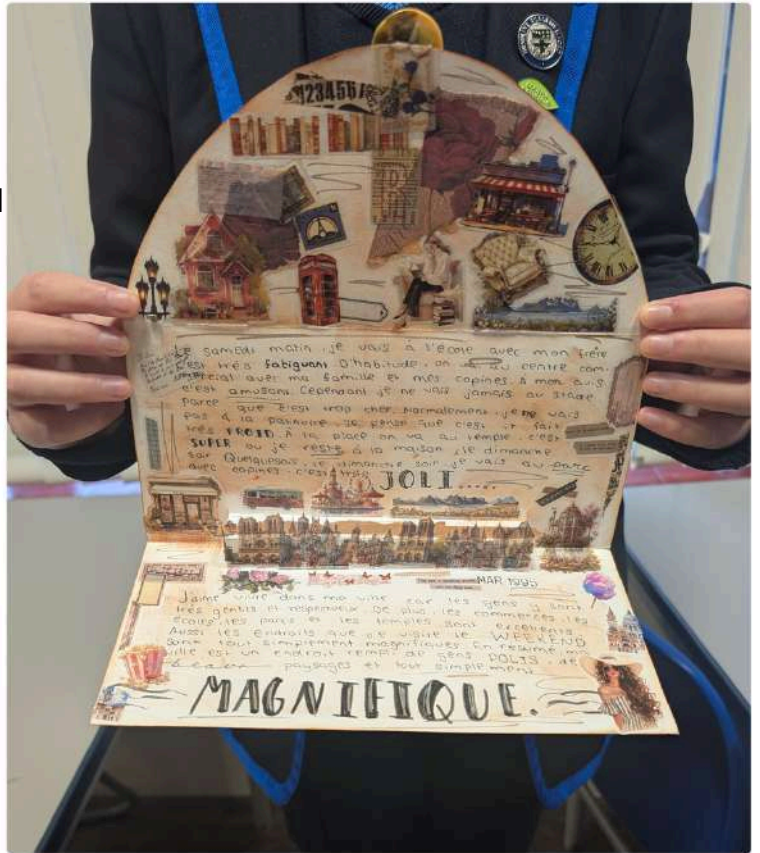 123456
Le samedi matin, je vais à l'école avec mon frère
c'est très fatiguant. D'habitude, on va au centre com-
mercial avec ma famille et mes copines. À mon avis
c'est amusant. Cependant je ne vais jamais au stade
parce que c'est trop cher. Normalement, je ne vais
pas à la patinoire. Je pense que c'est il fait
très FROID. À la place on va au temple, c'est
SUPER ou je reste à la maison, le dimanche
soir. Quelquefois, le dimanche soir, je vais au parc
avec copines. c'est très JOLI.....
MAR 1995
J'aime vivre dans ma ville car les gens y sont
très gentils et respectueux. De plus, les commerces, les
écoles, les parcs et les temples sont excellents.
Aussi les endroits que je visite le WEEKEND
sont tout simplement magnifiques. En résumé, ma
ville est un endroit rempli de gens POLIS, de
beaux paysages et tout simplement
MAGNIFIQUE.